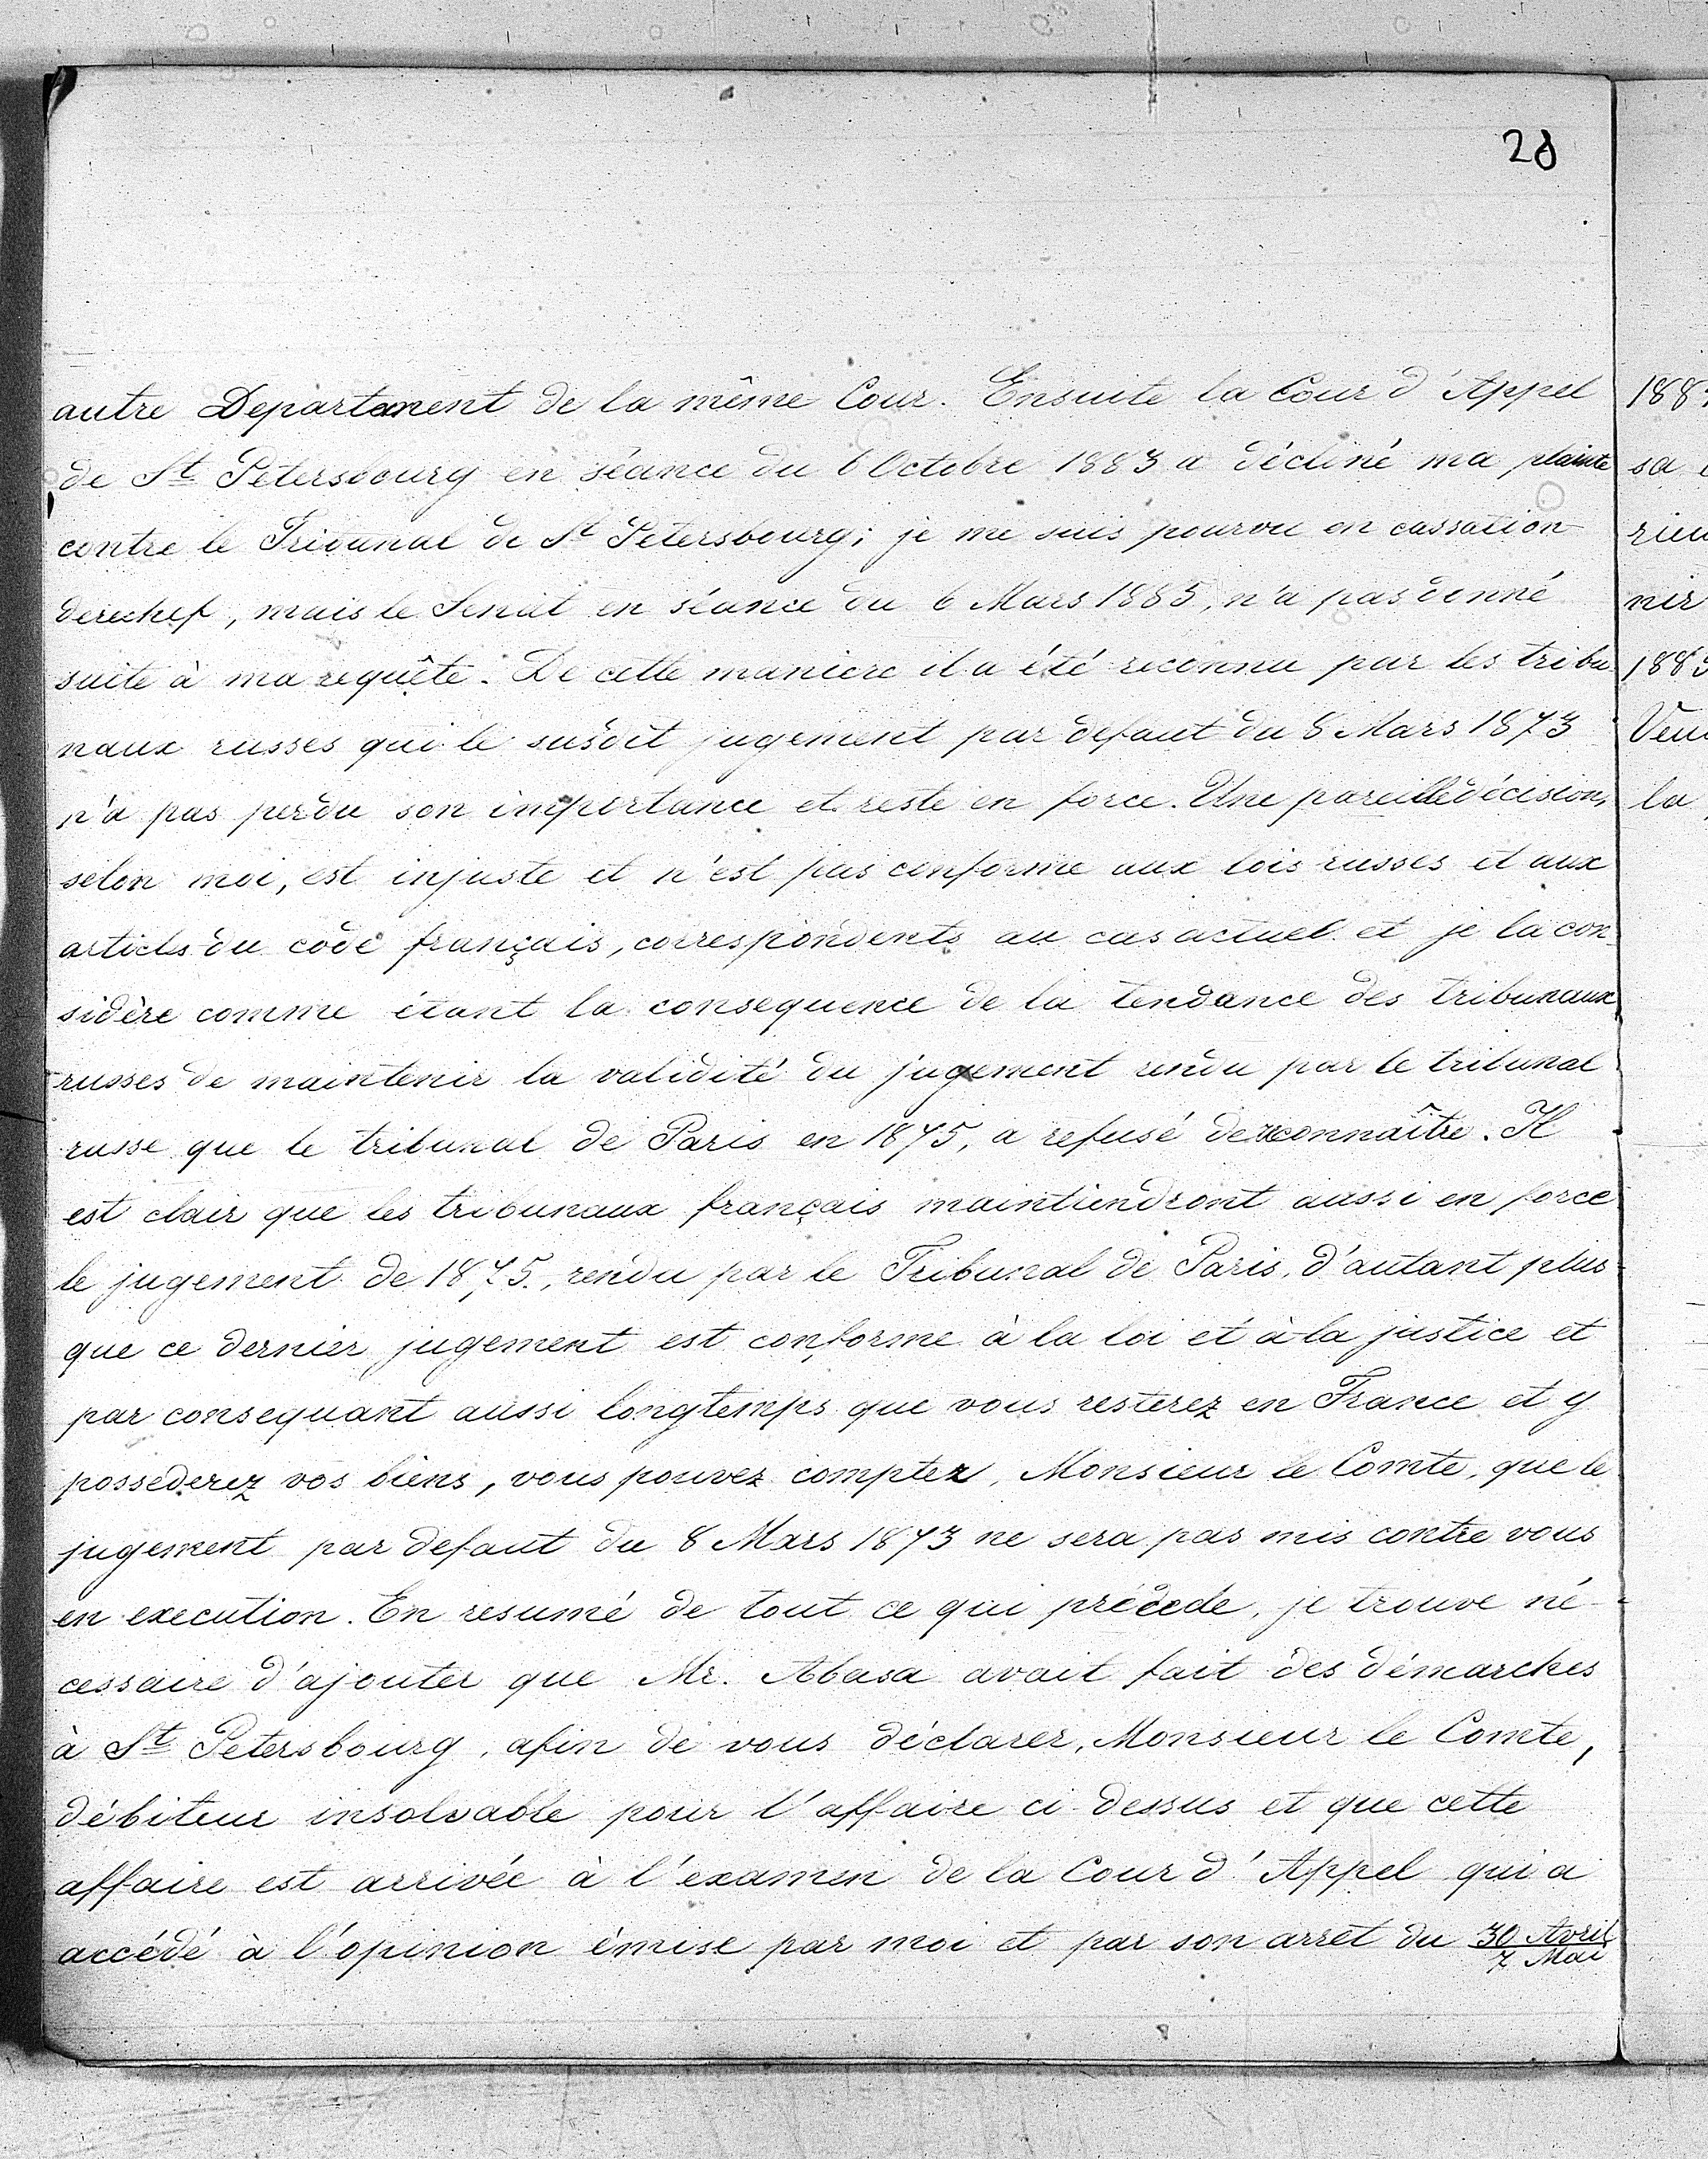 28
autre Departement de la même Cour. Ensuite la Cour d'Appel
de St Petersbourg en séance du 6 Octobre 1883 a décliné ma plainte
contre le Tribunal de St Petersbourg; je me suis pourvu en cassation
derechef, mais le Senat en séance du 6 Mars 1885, n'a pas donné
suite à ma requête. De cette maniere il a été reconnu par les tribu
naux russes qui le susdit jugement par defaut du 8 Mars 1873
n'a pas perdu son importance et reste en force. Une pareille décision,
selon moi, est injuste et n'est pas conforme aux lois russes et aux
articles du code français, correspondents au cas actuel et je la con
sidère comme étant la consequence de la tendance des tribunaux
russes de maintenir la validité du jugement rendu par le tribunal
russe que le tribunal de Paris en 1875, a refusé de reconnaître. Il
est clair que les tribunaux français maintiendront aussi en force
le jugement de 1875., rendu par le Tribunal de Paris, d'autant plus
que ce dernier jugement est conforme à la loi et à la justice et
par consequant aussi longtemps que vous resterez en France et y
possederez vos biens, vous pouvez compter, Monsieur le Comte, que le
jugement par defaut du 8 Mars 1873 ne sera pas mis contre vous
en execution. En resumé de tout ce qui précede, je trouve né-
cessaire d'ajouter que Mr. Abasa avait fait des démarches
à St Petersbourg, afin de vous déclarer, Monsieur le Comte,
débiteur insolvable pour l'affaire ci-dessus et que cette
affaire est arrivée à l'examen de la Cour d'Appel qui a
accédé à l'opinion émise par moi et par son arret du 30 Avril
7 Mai